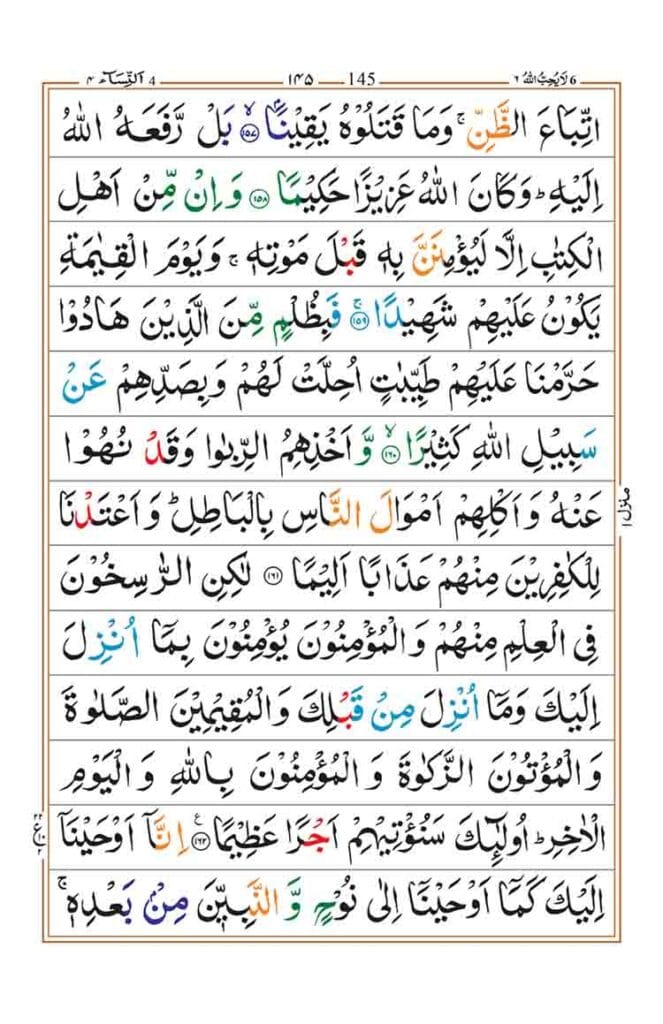 6 لَا یُحِبُّ اللهُ ٦ 145 ١٤٥ 4 اَلنِّسَآء ٤
اتِّبَاعَ الظَّنِّ ۚ وَمَا قَتَلُوْهُ يَقِيْنًۢا ۙ ﴿١٥٧﴾ بَلْ رَّفَعَهُ اللّٰهُ
اِلَيْهِ ؕ وَكَانَ اللّٰهُ عَزِيْزًا حَكِيْمًا ﴿١٥٨﴾ وَاِنْ مِّنْ اَهْلِ
الْكِتٰبِ اِلَّا لَيُؤْمِنَنَّ بِهٖ قَبْلَ مَوْتِهٖ ۚ وَيَوْمَ الْقِيٰمَةِ
يَكُوْنُ عَلَيْهِمْ شَهِيْدًا ۚ ﴿١٥٩﴾ فَبِظُلْمٍ مِّنَ الَّذِيْنَ هَادُوْا
حَرَّمْنَا عَلَيْهِمْ طَيِّبٰتٍ اُحِلَّتْ لَهُمْ وَبِصَدِّهِمْ عَنْ
سَبِيْلِ اللّٰهِ كَثِيْرًا ۙ ﴿١٦٠﴾ وَّ اَخْذِهِمُ الرِّبٰوا وَقَدْ نُهُوْا
عَنْهُ وَاَكْلِهِمْ اَمْوَالَ النَّاسِ بِالْبَاطِلِ ؕ وَاَعْتَدْنَا
لِلْكٰفِرِيْنَ مِنْهُمْ عَذَابًا اَلِيْمًا ﴿١٦١﴾ لٰكِنِ الرّٰسِخُوْنَ
فِى الْعِلْمِ مِنْهُمْ وَالْمُؤْمِنُوْنَ يُؤْمِنُوْنَ بِمَاۤ اُنْزِلَ
اِلَيْكَ وَمَاۤ اُنْزِلَ مِنْ قَبْلِكَ وَالْمُقِيْمِيْنَ الصَّلٰوةَ
وَالْمُؤْتُوْنَ الزَّكٰوةَ وَالْمُؤْمِنُوْنَ بِاللّٰهِ وَالْيَوْمِ
الْاٰخِرِ ؕ اُولٰٓئِكَ سَنُؤْتِيْهِمْ اَجْرًا عَظِيْمًا ﴿١٦٢﴾ ع اِنَّاۤ اَوْحَيْنَاۤ
اِلَيْكَ كَمَاۤ اَوْحَيْنَاۤ اِلٰى نُوْحٍ وَّالنَّبِيّٖنَ مِنْۢ بَعْدِهٖ ۚ
منزل ١